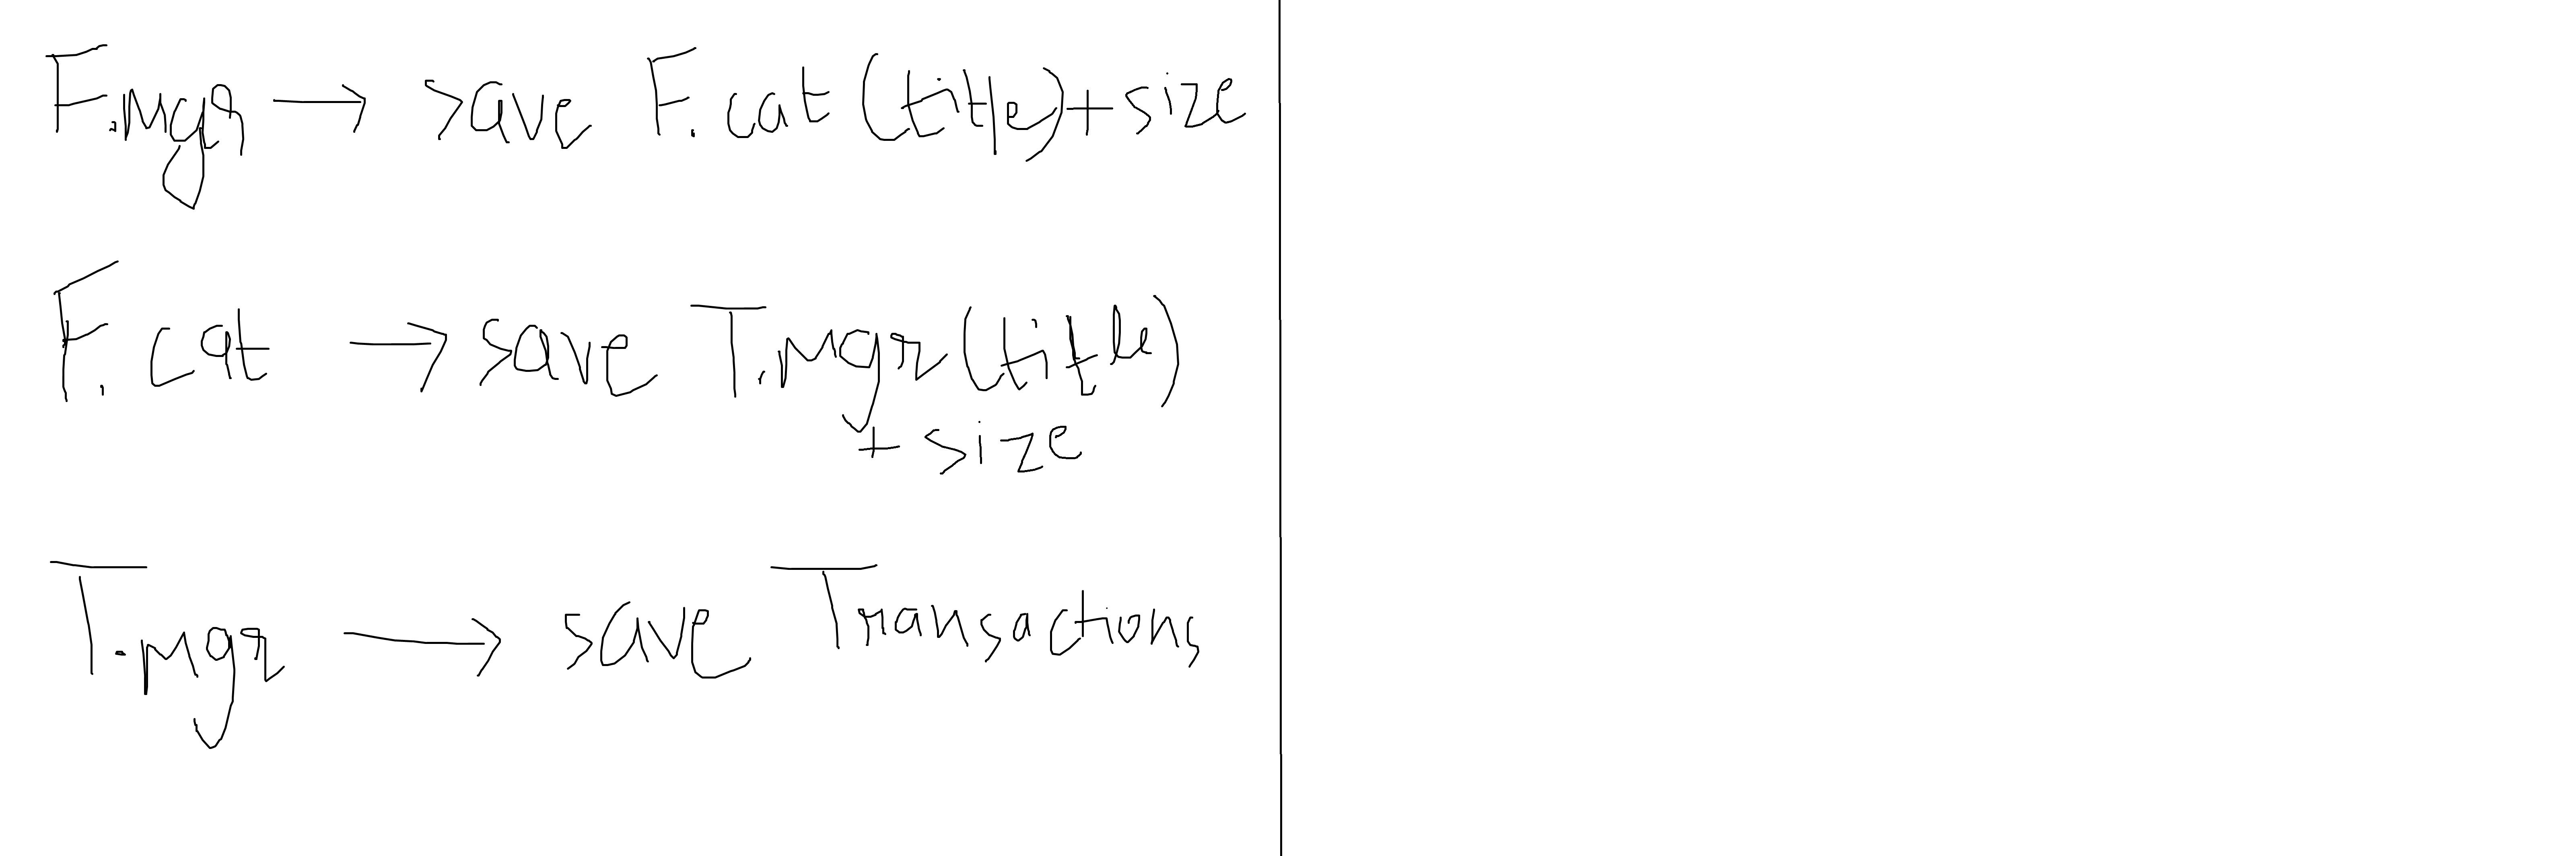 F.Mgr → save F.cat (title) + size
F.cat → save T.Mgr (title)
+ size
T.Mgr → save Transactions